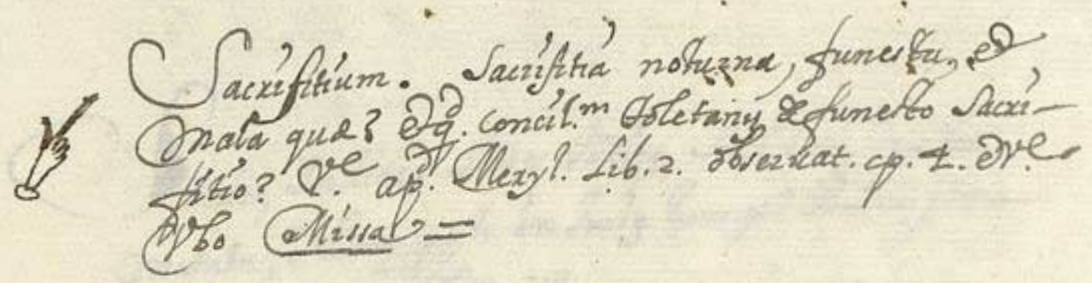 Sacrifitium. Sacrifitia noturna, funesta, et
mala quæ? Et q. concil.m Toletanũ de funesto Sacri-
fitio? V.e ap. Meryl. Lib. 2. observat. cp. 4. et V.e
Vbo Missa =